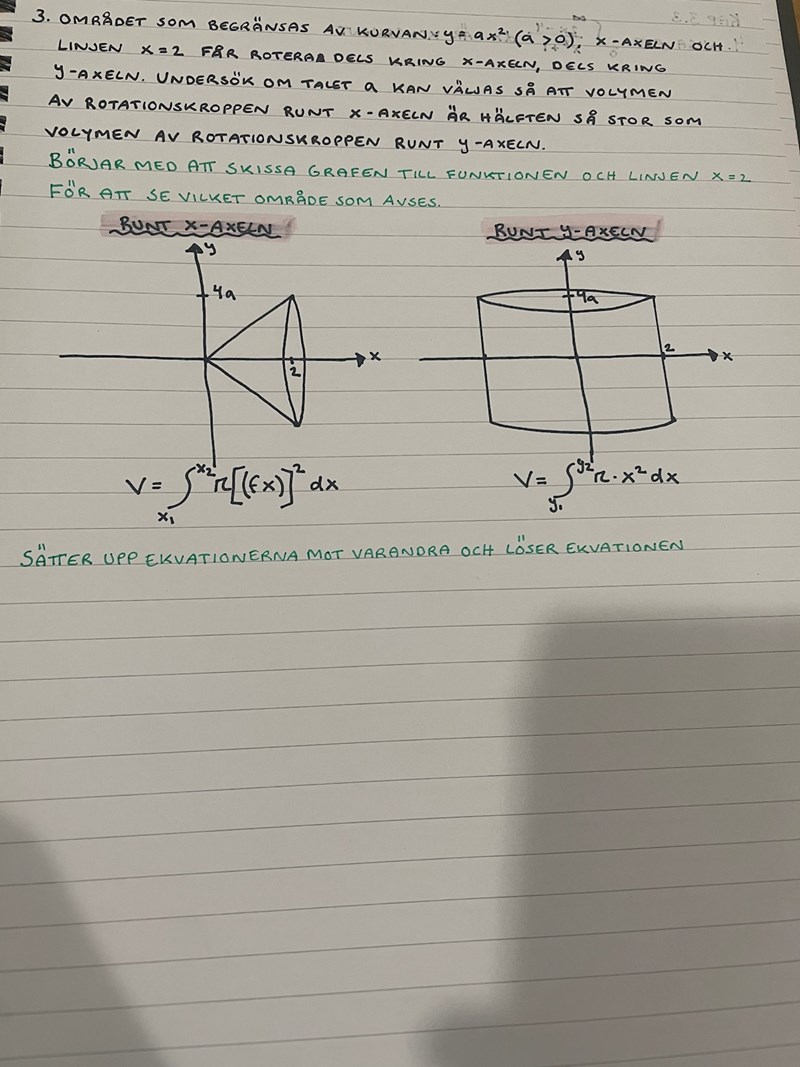 3. OMRÅDET SOM BEGRÄNSAS AV KURVAN y = ax² (a > 0), x-AXELN OCH
LINJEN x = 2 FÅR ROTERA DELS KRING x-AXELN, DELS KRING
y-AXELN. UNDERSÖK OM TALET a KAN VÄLJAS SÅ ATT VOLYMEN
AV ROTATIONSKROPPEN RUNT x-AXELN ÄR HÄLFTEN SÅ STOR SOM
VOLYMEN AV ROTATIONSKROPPEN RUNT y-AXELN.
BÖRJAR MED ATT SKISSA GRAFEN TILL FUNKTIONEN OCH LINJEN x = 2
FÖR ATT SE VILKET OMRÅDE SOM AVSES.
RUNT X-AXELN
y
4a
x
2
V = ∫x₁^x₂ π[(fx)]² dx
RUNT Y-AXELN
y
4a
2
x
V = ∫y₁^y₂ π · x² dx
SÄTTER UPP EKVATIONERNA MOT VARANDRA OCH LÖSER EKVATIONEN